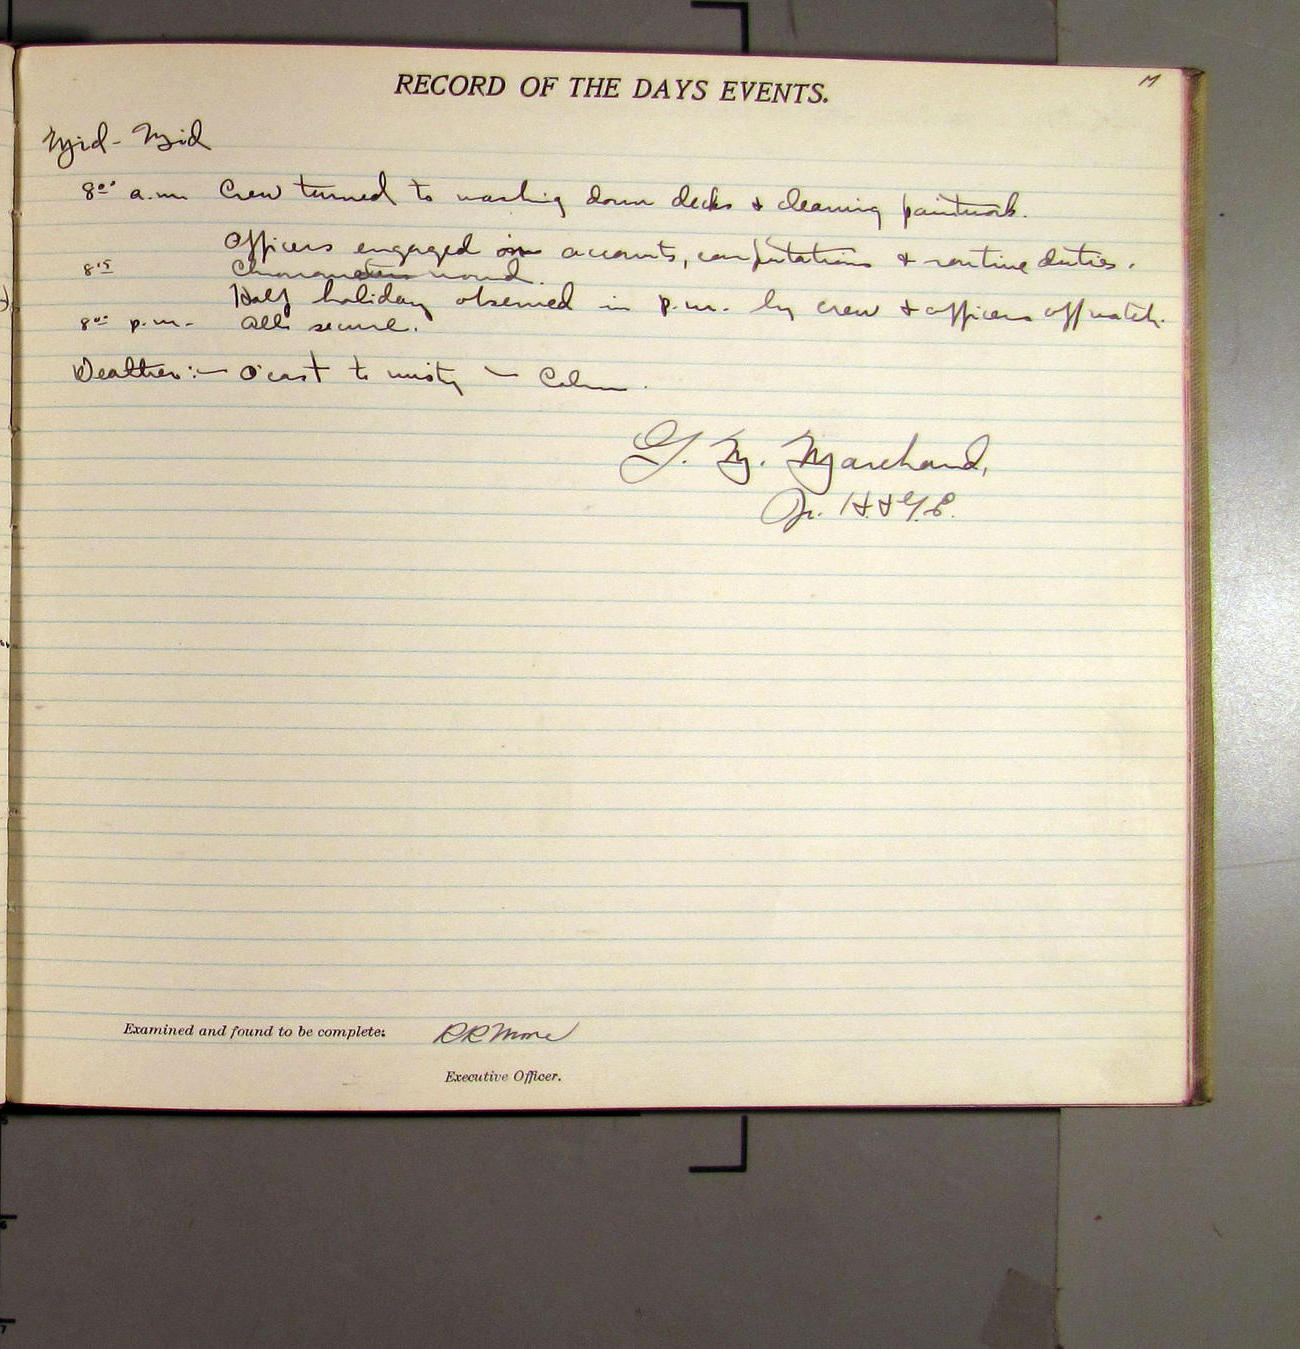 M
RECORD OF THE DAYS EVENTS.
Mid - Mid
8⁰⁰ a.m. Crew turned to washing down decks & cleaning paintwork.
Officers engaged in accounts, computations & routine duties.
8¹⁵ Chronometers wound.
Half holiday observed in p.m. by crew & officers off watch.
8⁰⁰ p.m. All secure.
Weather:- O'cast to misty - Calm.
G. M. Marchand,
Jr. H. & G. E.
Examined and found to be complete: R R Moore
Executive Officer.